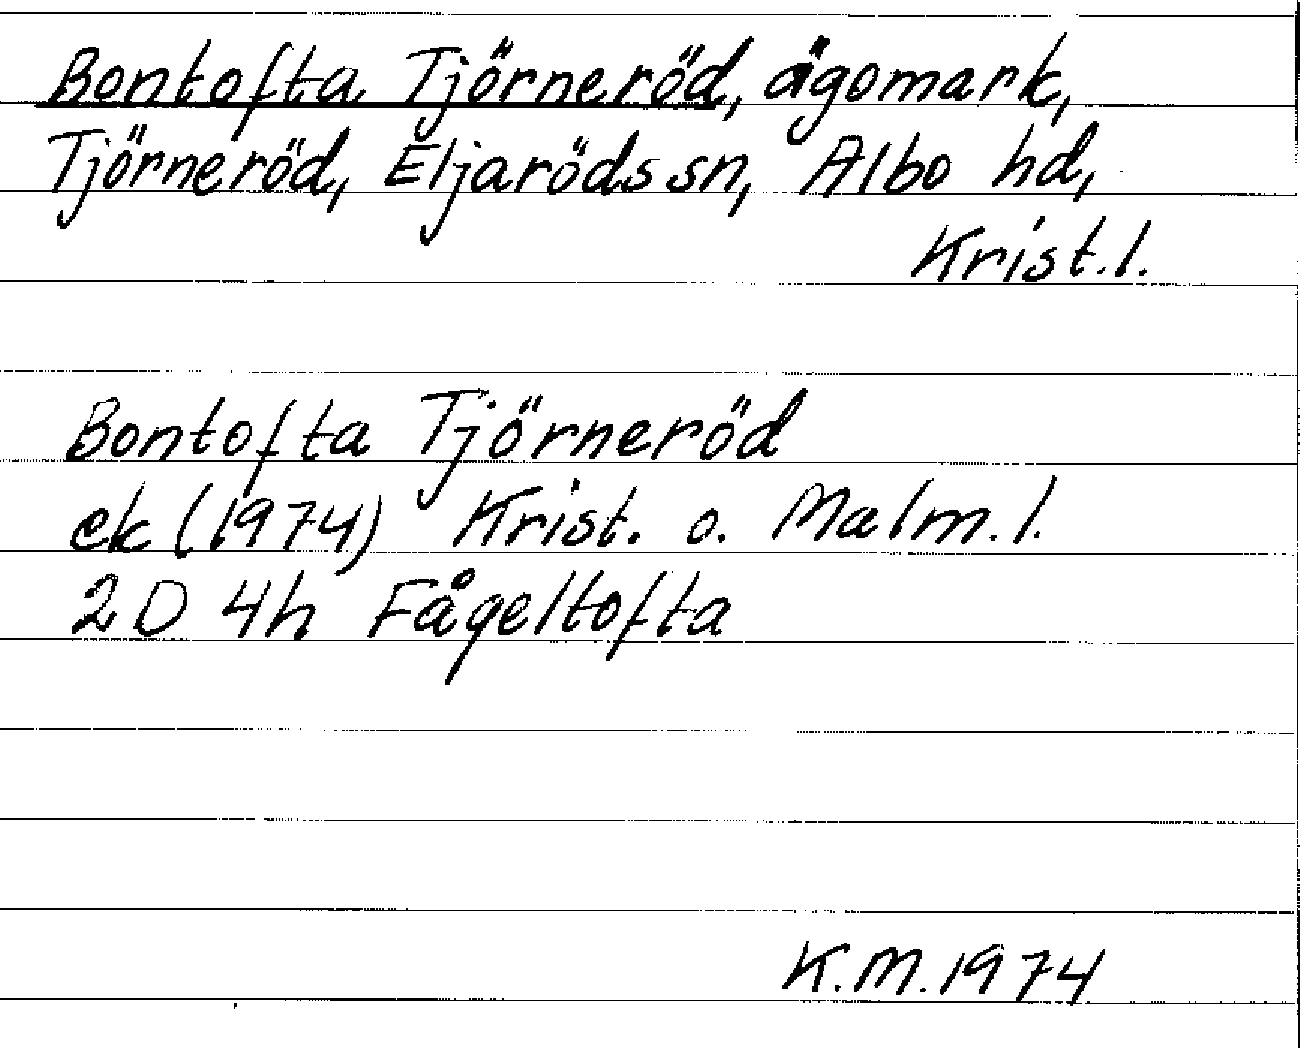 Bontofta Tjörneröd, ägomark,
Tjörneröd, Eljaröds sn, Albo hd,
Krist.l.
Bontofta Tjörneröd
ek (1974) Krist. o. Malm.l.
2D 4h Fågeltofta
K.M.1974